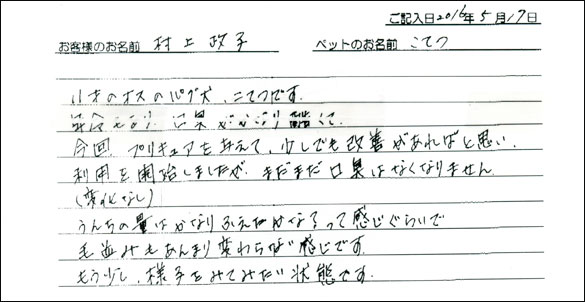 ご記入日2016年5月17日
お客様のお名前 村上政子 ペットのお名前 こてつ
11才のオスのパグ犬、こてつです。
年令もあり 口臭がかなり 酷くて、
今回、プリキュアを与えて、少しでも改善があればと思い、
利用を開始しましたが、まだまだ口臭はなくなりません
(変化なし)
うんちの量はかなりふえたかな?って感じぐらいで
毛並みもあんまり変わらない感じです。
もう少し、様子をみてみたい状態です。